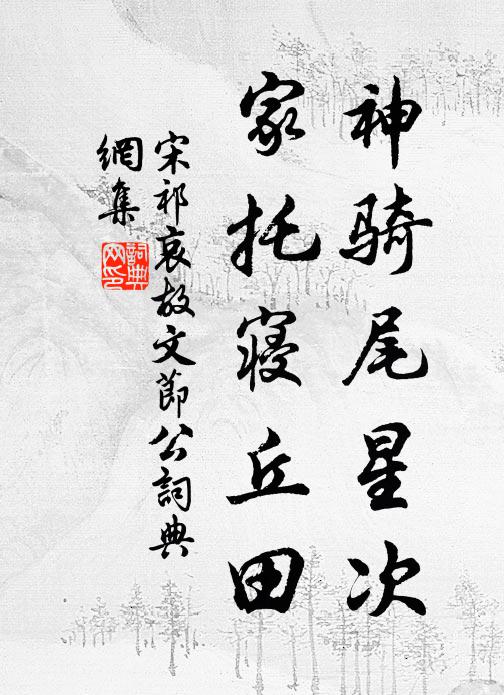 神骑尾星次
家托寝丘田
宋祁哀故文節公詞典
網集
詞典
网印